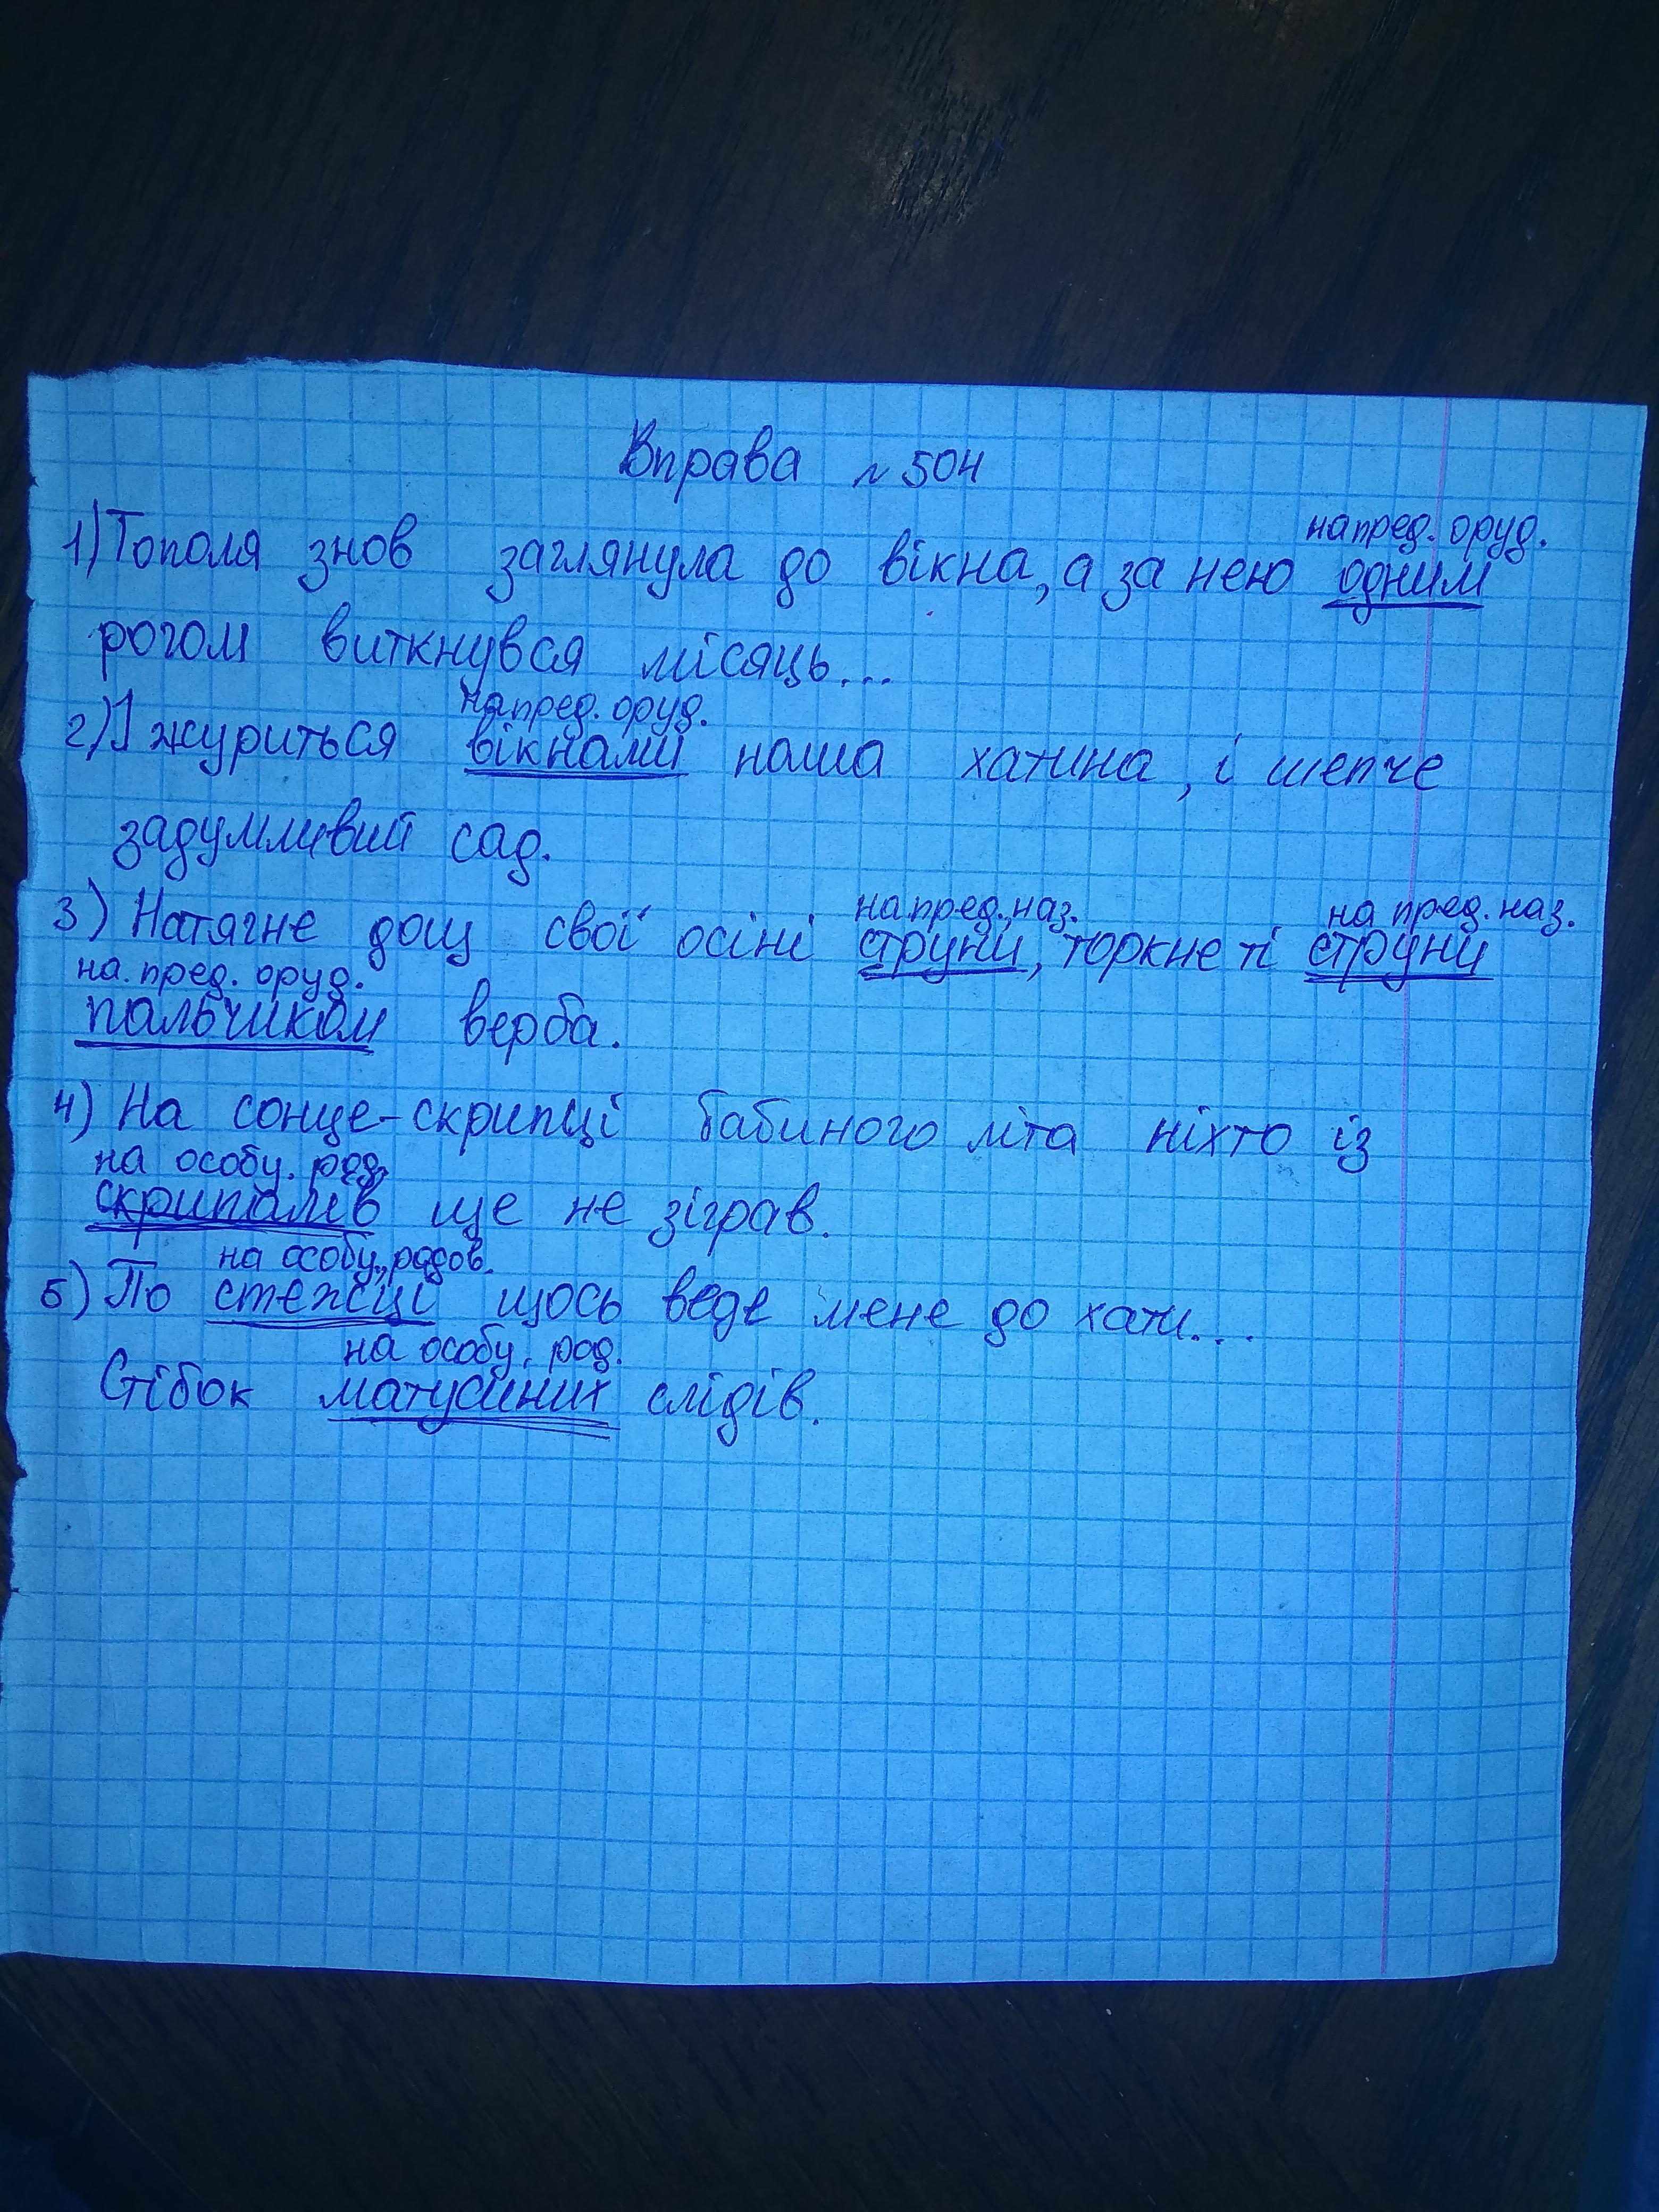 Вправа № 504
на пред. оруд.
1) Тополя знов заглянула до вікна, а за нею одним
рогом виткнувся місяць...
на пред. оруд.
2) І журиться вікнами наша хатина, і шепче
задумливий сад.
на пред., наз. на пред. наз.
3) Натягне дощ свої осіні струни, торкне ті струни
на. пред. оруд.
пальчиком верба.
4) На сонце-скрипці бабиного літа ніхто із
на особу. род.
скрипалів ще не зіграв.
на особу, родов.
5) По стежці щось веде мене до хати...
на особу, род.
Стібок матусиних слідів.